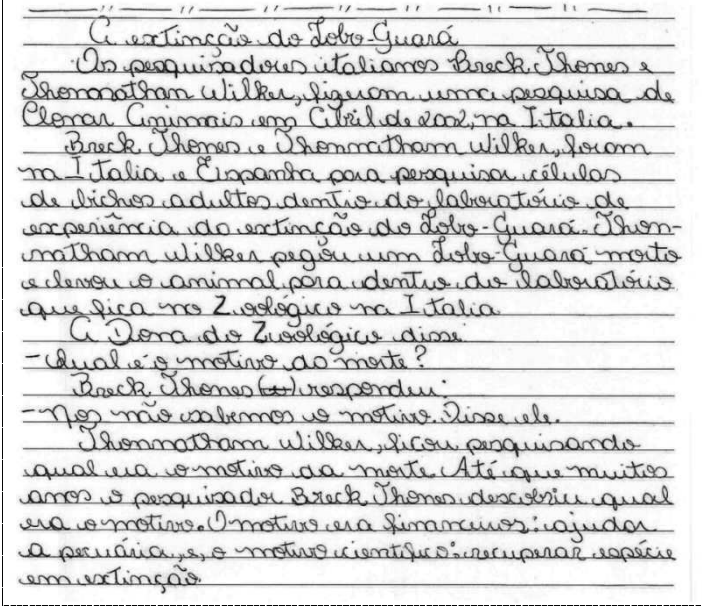 A extinção do Lobo-Guará
Os pesquisadores italianos Breck Jhones e
Jhonnatham Wilker, figeram uma pesquisa de
Clonar Animais em Abril de 2002, na Italia.
Breck Jhones e Jhonnatham Wilker, foram
na Italia e Eispanha para pesquisar células
de bichos adultos dentro do laboratório de
experiência da extinção do Lobo-Guará. Jhon-
natham Wilker pegou um Lobo-Guará morto
e levou o animal para dentro do laboratório
que fica no Zoológico na Italia
A Dona do Zoológico disse
- Qual é o motivo da morte?
Breck Jhones respondeu:
- Nos não sabemos o motivo. Disse ele.
Jhonnatham Wilker, ficou pesquisando
qual era o motivo da morte Até que muitos
anos o pesquisador Breck Jhones descobriu qual
era o motivo. O motivo era : ajudar
a pecuária, e, o motivo cientifico: recuperar espécie
em extinção